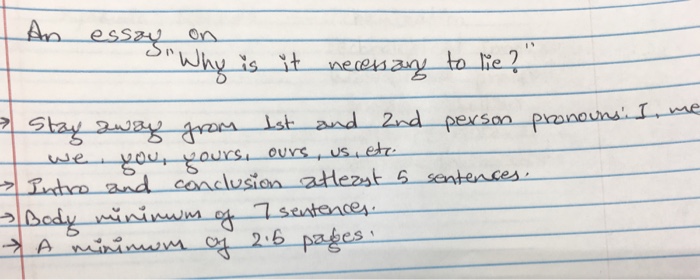 An essay on
"Why is it necessary to lie?"
→ Stay away from 1st and 2nd person pronouns: I, me
we, you, yours, ours, us, etc.
→ Intro and conclusion atleast 5 sentences.
→ Body minimum of 7 sentences.
→ A minimum of 2.5 pages.